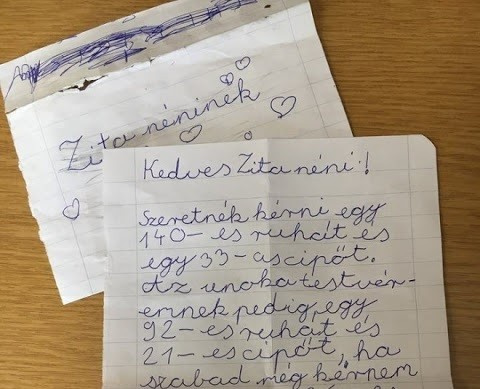 Zita néninek
Kedves Zita néni!
Szeretnék kérni egy
140-es ruhát és
egy 33-as cipőt.
Az unokatestvér-
emnek pedig, egy
92-es ruhát és
21-es cipőt, ha
szabad még kérnem